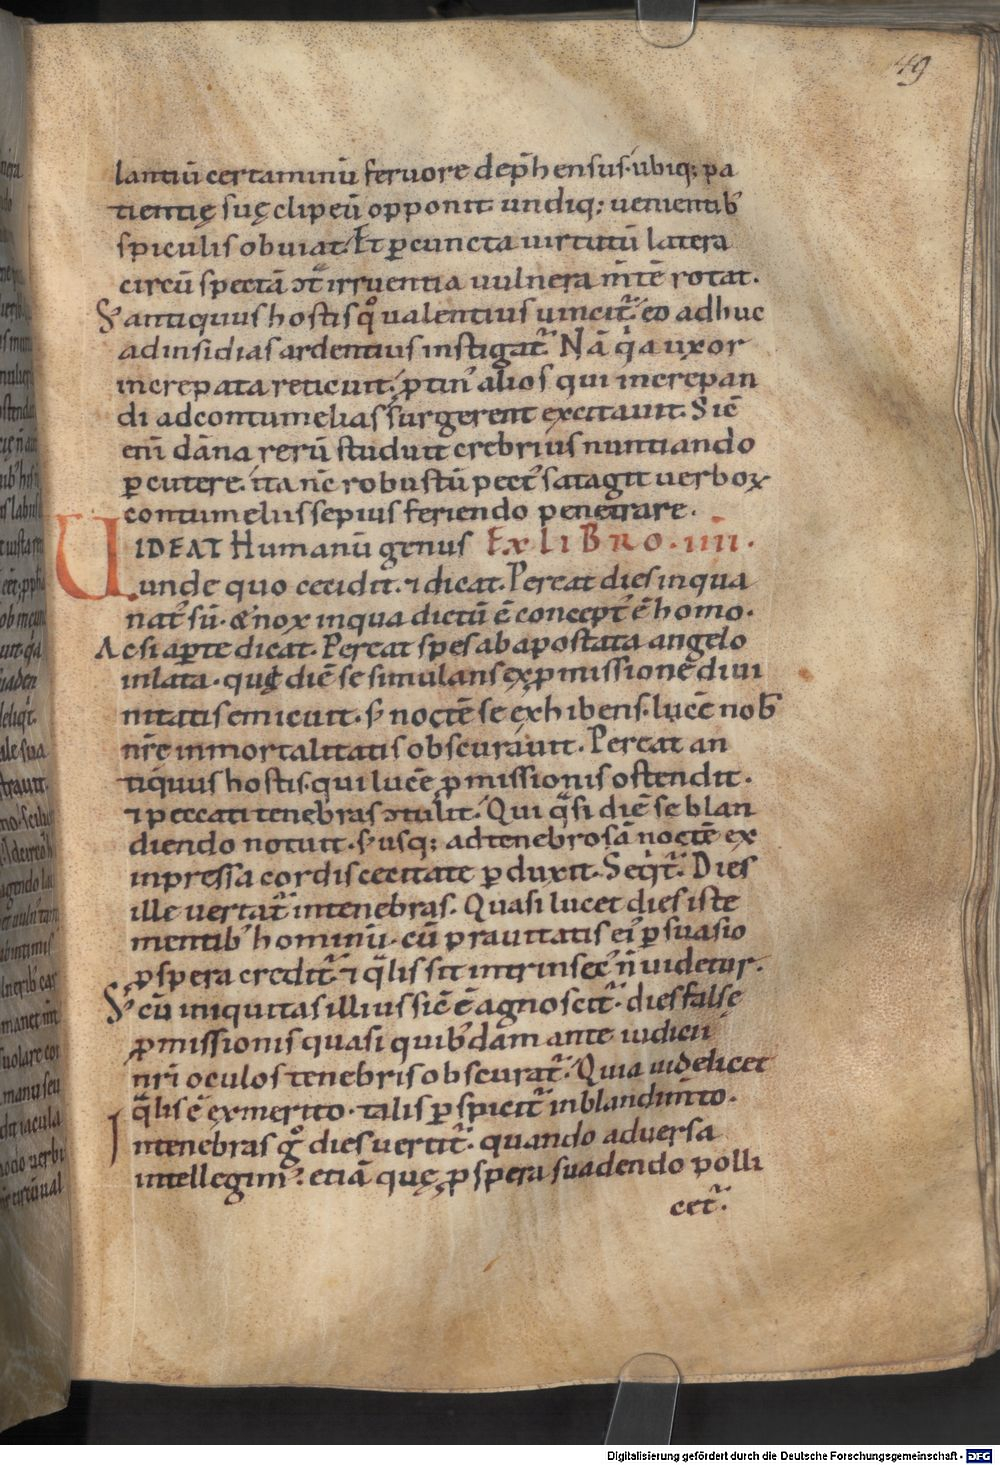 49
lantiū certaminū feruore dep̄hensus·ubiq; pa
tientię suę clipeū opponit· undiq; uenientib'
spiculis obuiat·́ Et p cuncta uirtutū latera
circū spectā ↄt̄ irruentia uulnera m̄tē rotat·
S; antiquus hostis q̊ ualentius uincit᷑·́ eo adhuc
ad insidias ardentius instigat᷑· Nā q̓a uxor
increpata reticuit·́ ptin' alios qui increpan
di ad contumelias surgerent excitauit· Sić
eni dāna rerū studuit crebrius nuntiando
p cutere· ita nc̄ robustū pect' satagit uerbox
contumeliis sepius feriendo penetrare·
UIDEAT Humanū genus Ex liBRO·IIII·
unde quo cecidit· ⁊ dicat· Pereat dies in qua
nat' sū· & nox in qua dictū ē concept' ē homo·
Ac si apte dicat· Pereat spes ab apostata angelo
inlata· quę diē se simulans ex pmissionē diui
nitatis emicuit· s; noctē se exhibens· lucē nob'
nr̄e inmortalitatis obscurauit· Pereat an
tiquus hostis· qui lucē pmissionis ostendit·
⁊ peccati tenebras ↄtulit·́ Qui q̄si diē se blan
diendo notuit· s; usq; ad tenebrosā noctē ex
inpressa cordis cecitate pduxit· Seqt᷑· Dies
ille uertat᷑ in tenebras· Quasi lucet dies iste
mentib' hominū· cū prauitatis ei' psuasio
pspera credit᷑· ⁊ q̄lis sit intrinsec' n̄ uidetur·
S; cū iniquitas illius sić ē agnoscit᷑· dies false
pmissionis quasi quib'dam ante iudicii
nr̄i oculos tenebris obscurat᷑·́ Quia uidelicet
q̄lis ē ex merito· talis pspicit᷑ in blandim̄to·
In tenebras g̊ dies uertit᷑· quando aduersa
intellegim'· etiā quę pspera suadendo polli
cet᷑·
Digitalisierung gefördert durch die Deutsche Forschungsgemeinschaft - DFG